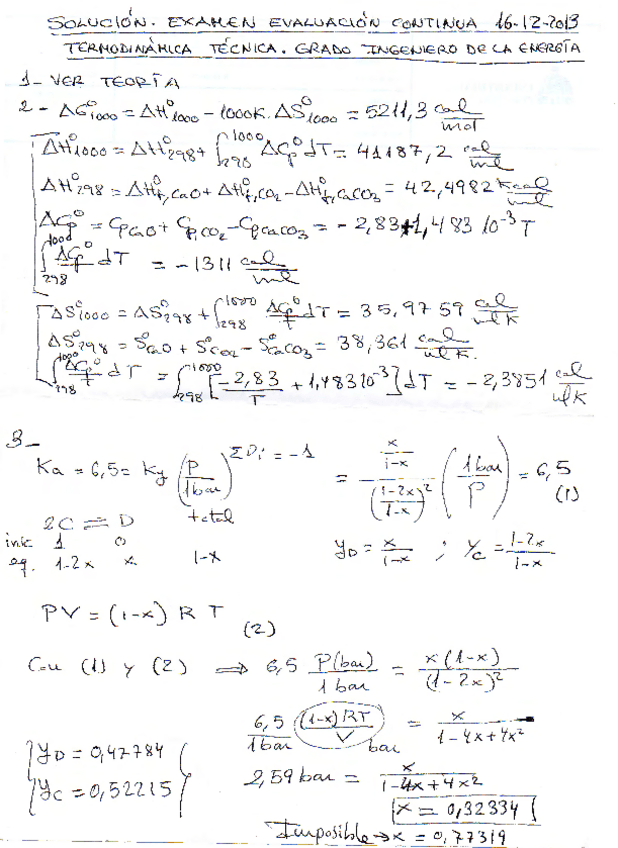 SOLUCIÓN. EXAMEN EVALUACIÓN CONTINUA 16-12-2013
TERMODINÁMICA TÉCNICA. GRADO INGENIERO DE LA ENERGÍA
1- VER TEORÍA
2- ΔG°1000 = ΔH°1000 - 1000K. ΔS°1000 = 5211,3 cal/mol
ΔH°1000 = ΔH°298 + ∫298^1000 ΔCp° dT = 41187,2 cal/ml
ΔH°298 = ΔH°f,CaO + ΔH°f,CO2 - ΔH°f,CaCO3 = 42,4982 Kcal/ml
ΔCp° = CpCaO + Cp,CO2 - CpCaCO3 = -2,83+1,483 10^-3 T
∫298^1000 ΔCp° dT = -1311 cal/ml
ΔS°1000 = ΔS°298 + ∫298^1000 ΔCp°/T dT = 35,9759 cal/ml K
ΔS°298 = S°CaO + S°CO2 - S°CaCO3 = 38,361 cal/ml K.
∫298^1000 ΔCp°/T dT = ∫298^1000 [-2,83/T + 1,483 10^-3] dT = -2,3851 cal/ml K
3-
Ka = 6,5 = Ky (P/1bar)^Σνi = -1 = (x/(1-x))/((1-2x)/(1-x))^2 (1bar/P) = 6,5 (1)
2C ⇌ D total
inic 1 0
eq. 1-2x x 1-x
yD = x/(1-x) ; yC = (1-2x)/(1-x)
PV = (1-x) R T (2)
Con (1) y (2) ⇒ 6,5 P(bar)/1 bar = x(1-x)/(1-2x)^2
6,5/1bar (1-x)RT/V bar = x/(1-4x+4x^2)
yD = 0,47784
yC = 0,52215
2,59 bar = x/(1-4x+4x^2)
x = 0,32334
Imposible → x = 0,77319